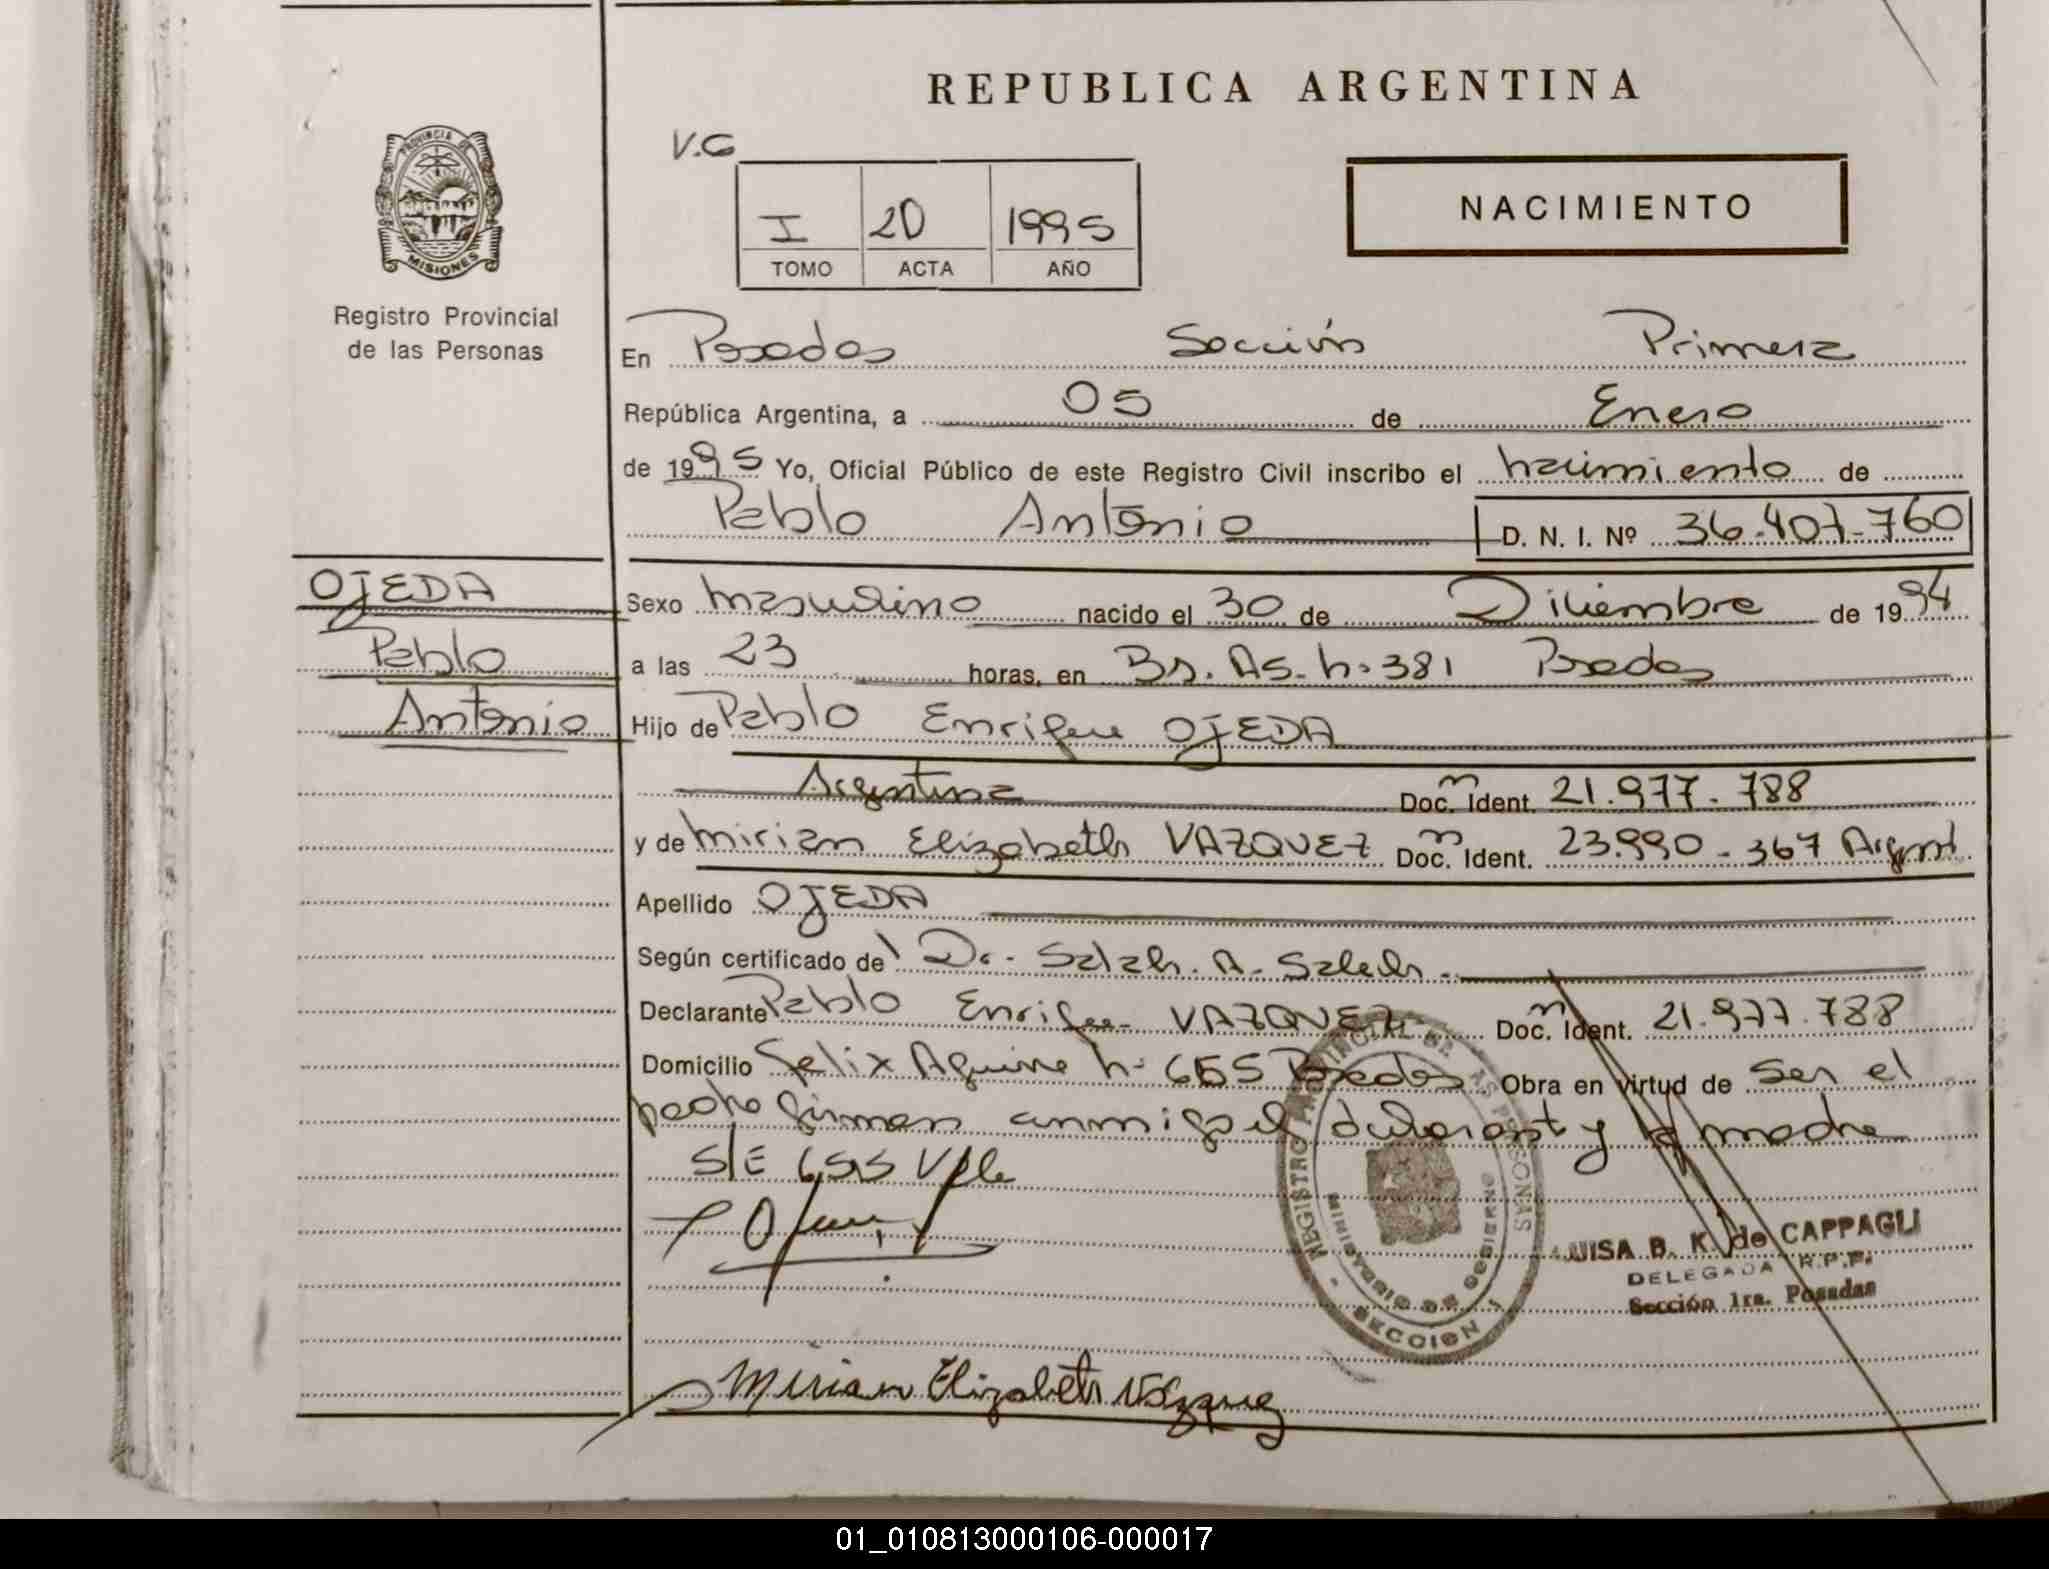 REPUBLICA ARGENTINA
V.G
I 20 1995
TOMO ACTA AÑO
NACIMIENTO
PROVINCIA DE
MISIONES
Registro Provincial
de las Personas
En Posadas Sección Primera
República Argentina, a 05 de Enero
de 1995 Yo, Oficial Público de este Registro Civil inscribo el nacimiento de
Pablo Antonio D. N. I. Nº 36.407.760
OJEDA
Pablo
Antonio
Sexo Masculino nacido el 30 de Diciembre de 1994
a las 23 horas, en Bs. As. n. 381 Posadas
Hijo de Pablo Enrique OJEDA
Argentina Doc. Ident. 21.977.788
y de Mirian Elizabeth VAZQUEZ Doc. Ident. 23.990.367 Argent.
Apellido OJEDA
Según certificado del Dr. Salah. A. Saleh.
Declarante Pablo Enrique VAZQUEZ Doc. Ident. 21.977.788
Domicilio Felix Aguirre n. 655 Posadas Obra en virtud de ser el
padre firman conmigo el declarante y la madre
S/E 655 Vale
REGISTRO PROVINCIAL DE LAS PERSONAS
MINISTERIO DE GOBIERNO
SECCION 1
LUISA B. K. de CAPPAGLI
DELEGADA R.P.P.
Sección 1ra. Posadas
Mirian Elizabeth Vázquez
01_010813000106-000017